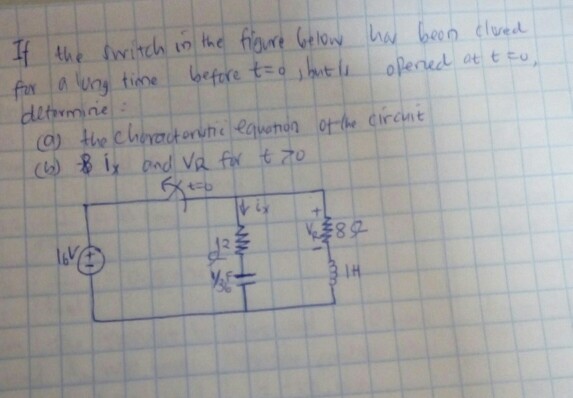 If the switch in the figure below has been closed
for a long time before t=0, but is opened at t=0,
determine:
(a) the characteristic equation of the circuit
(b) ix and VR for t>0
t=0
ix
+
VR
8Ω
-
16V
+
-
1/36 F
1H